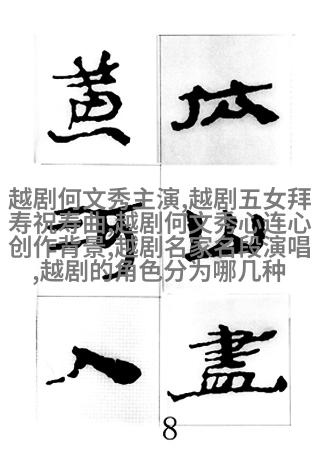 依山盡
黄河入
越剧何文秀主演,越剧五女拜
寿祝寿曲,越剧何文秀心连心
创作背景,越剧名家名段演唱
,越剧的角色分为哪几种
8